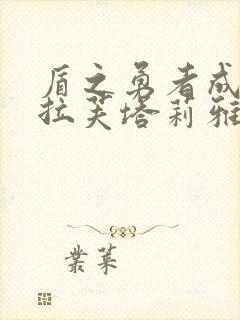 盾之勇者成
拉芙塔莉雅
業菜